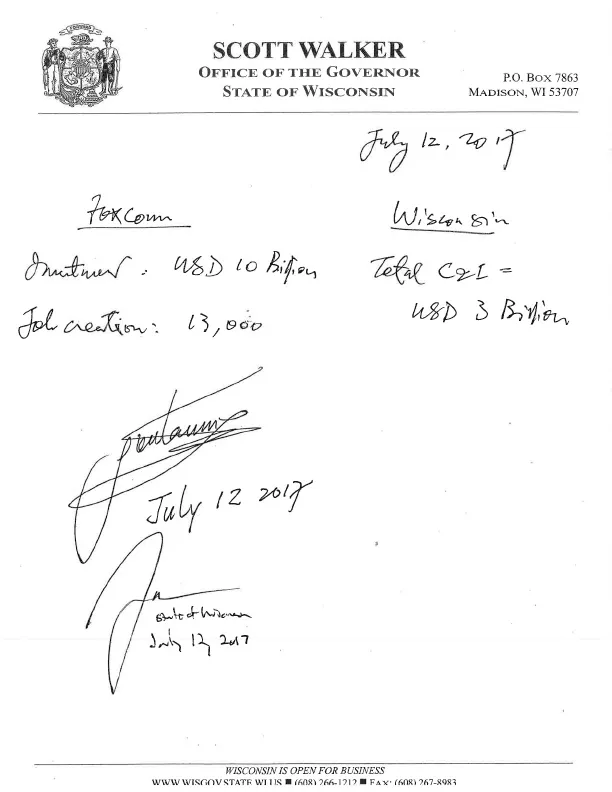 FORWARD
SCOTT WALKER
OFFICE OF THE GOVERNOR
STATE OF WISCONSIN
P.O. BOX 7863
MADISON, WI 53707
July 12, 2017
Foxconn
Investment : USD 10 Billion
Job creation : 13,000
Wisconsin
Total C&I =
USD 3 Billion
July 12 2017
State of Wisconsin
July 12, 2017
WISCONSIN IS OPEN FOR BUSINESS
WWW.WISGOV.STATE.WI.US ■ (608) 266-1212 ■ FAX: (608) 267-8983